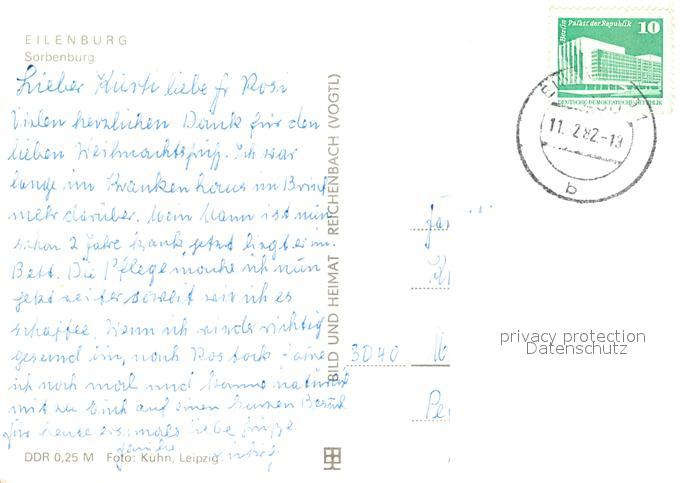 EILENBURG
Sorbenburg
Lieber Kurti liebe fr Rosi
Vielen herzlichen Dank für den
lieben Weihnachtsgruß. Ich war
lange im Krankenhaus im Brief
mehr darüber. Mein Mann ist nun
schon 2 Jahre krank jetzt liegt er im
Bett. Die Pflege mache ich nun
jetzt weiter soweit wie ich es
schaffe. Wenn ich wieder richtig
gesund bin, nach Rostock fahre
ich noch mal und komme natürlich
mit zu Euch auf einen kurzen Besuch
für heute erstmals liebe Grüße
Familie
DDR 0,25 M Foto: Kühn, Leipzig
BILD UND HEIMAT REICHENBACH (VOGTL)
Berlin Palast der Republik 10
DEUTSCHE DEMOKRATISCHE REPUBLIK
11. 2.82-19
b
3040
privacy protection
Datenschutz